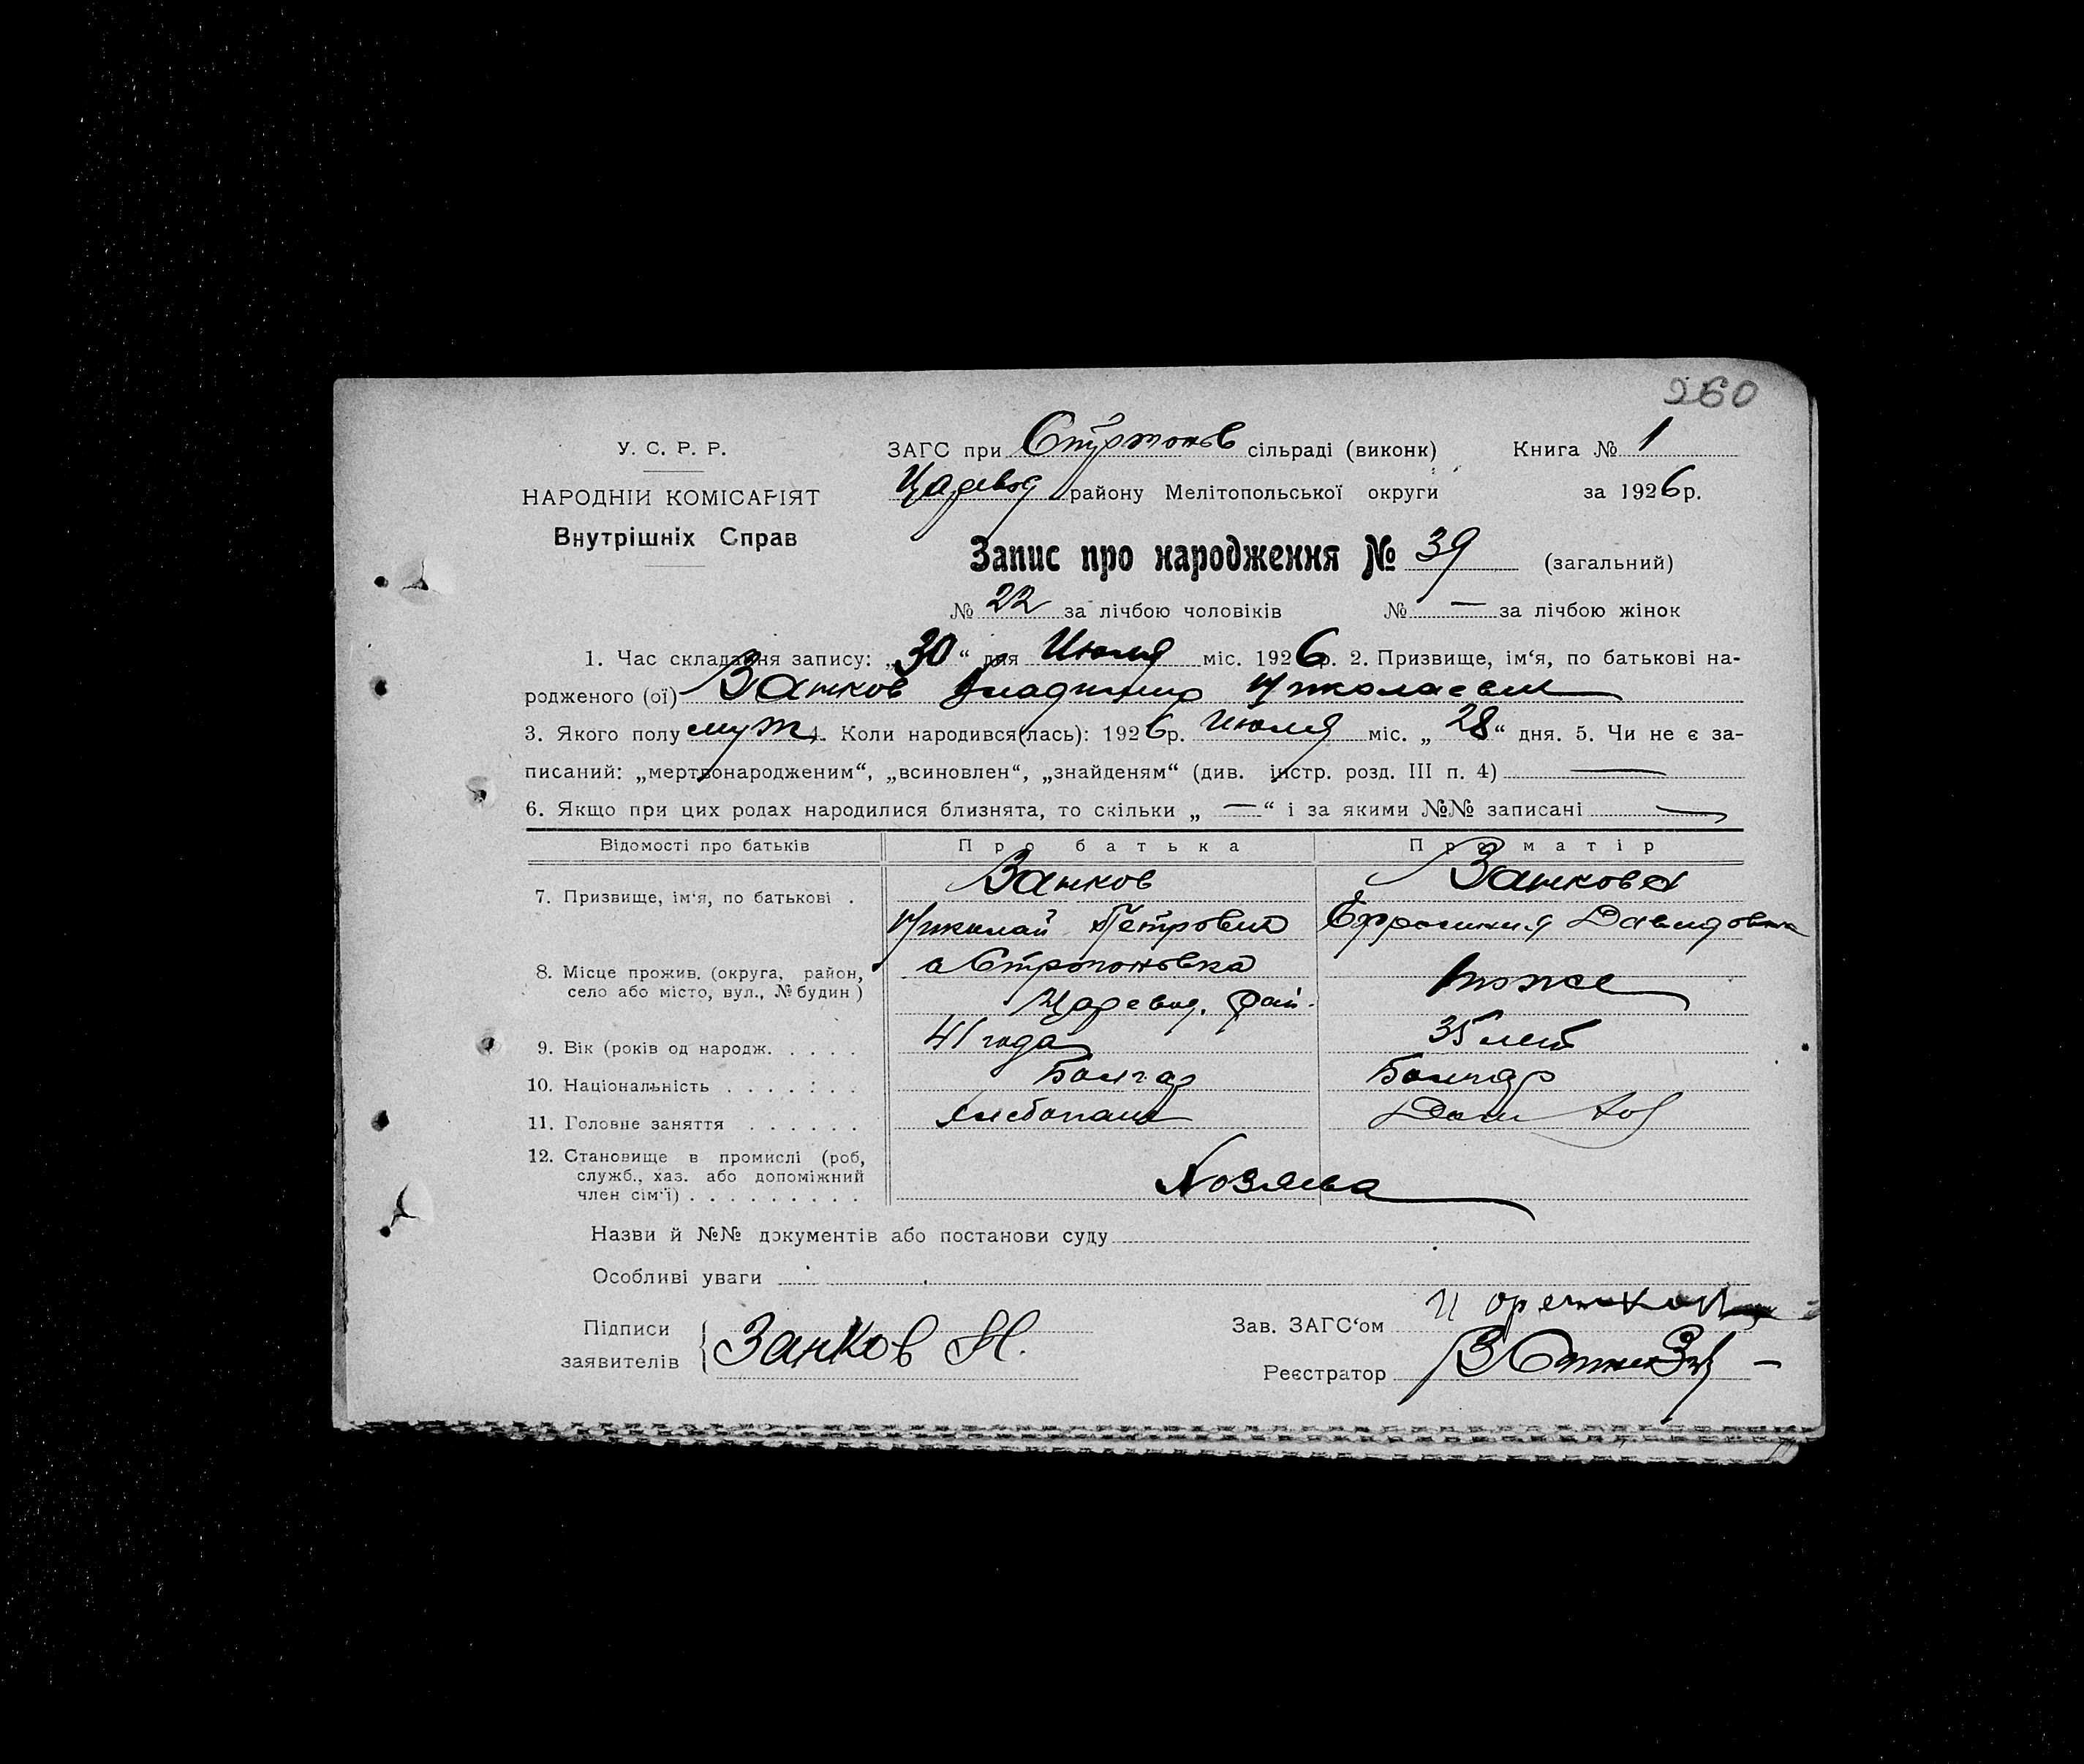 260
У. С. Р. Р.
НАРОДНІЙ КОМІСАРІЯТ
Внутрішніх Справ
ЗАГС при сільраді (виконк) Книга № 1
Царевод району Мелітопольської округи за 1926 р.
Запис про народження № 39 (загальний)
№ 22 за лічбою чоловіків № — за лічбою жінок
1. Час складання запису: „30“ дня Июля міс. 1926 р. 2. Призвище, ім‘я, по батькові на-
родженого (ої) Занков Владимир Николаевич
3. Якого полу муж 4. Коли народився(лась): 1926 р. Июля міс. „28“ дня. 5. Чи не є за-
писаний: „мертвонародженим“, „всиновлен“, „знайденям“ (див. інстр. розд. III п. 4) —
6. Якщо при цих родах народилися близнята, то скільки „—“ і за якими №№ записані —
Відомості про батьків Про батька Про матір
7. Призвище, ім‘я, по батькові . Занков Занкова
Николай Петрович Ефросиния Давидовна
8. Місце прожив. (округа, район,
село або місто, вул., № будин)
Царевод. рай. тоже
9. Вік (років од народж. . . . . 41 года 35 лет
10. Національність . . . . . . Болгар Болгар
11. Головне заняття . . . . . . Хлебопаш Дом хоз
12. Становище в промислі (роб,
служб., хаз. або допоміжний
член сім‘ї) . . . . . . . . . Хозяева
Назви й №№ документів або постанови суду
Особливі уваги
Підписи
заявителів Занков Н.
Зав. ЗАГС‘ом
Реєстратор